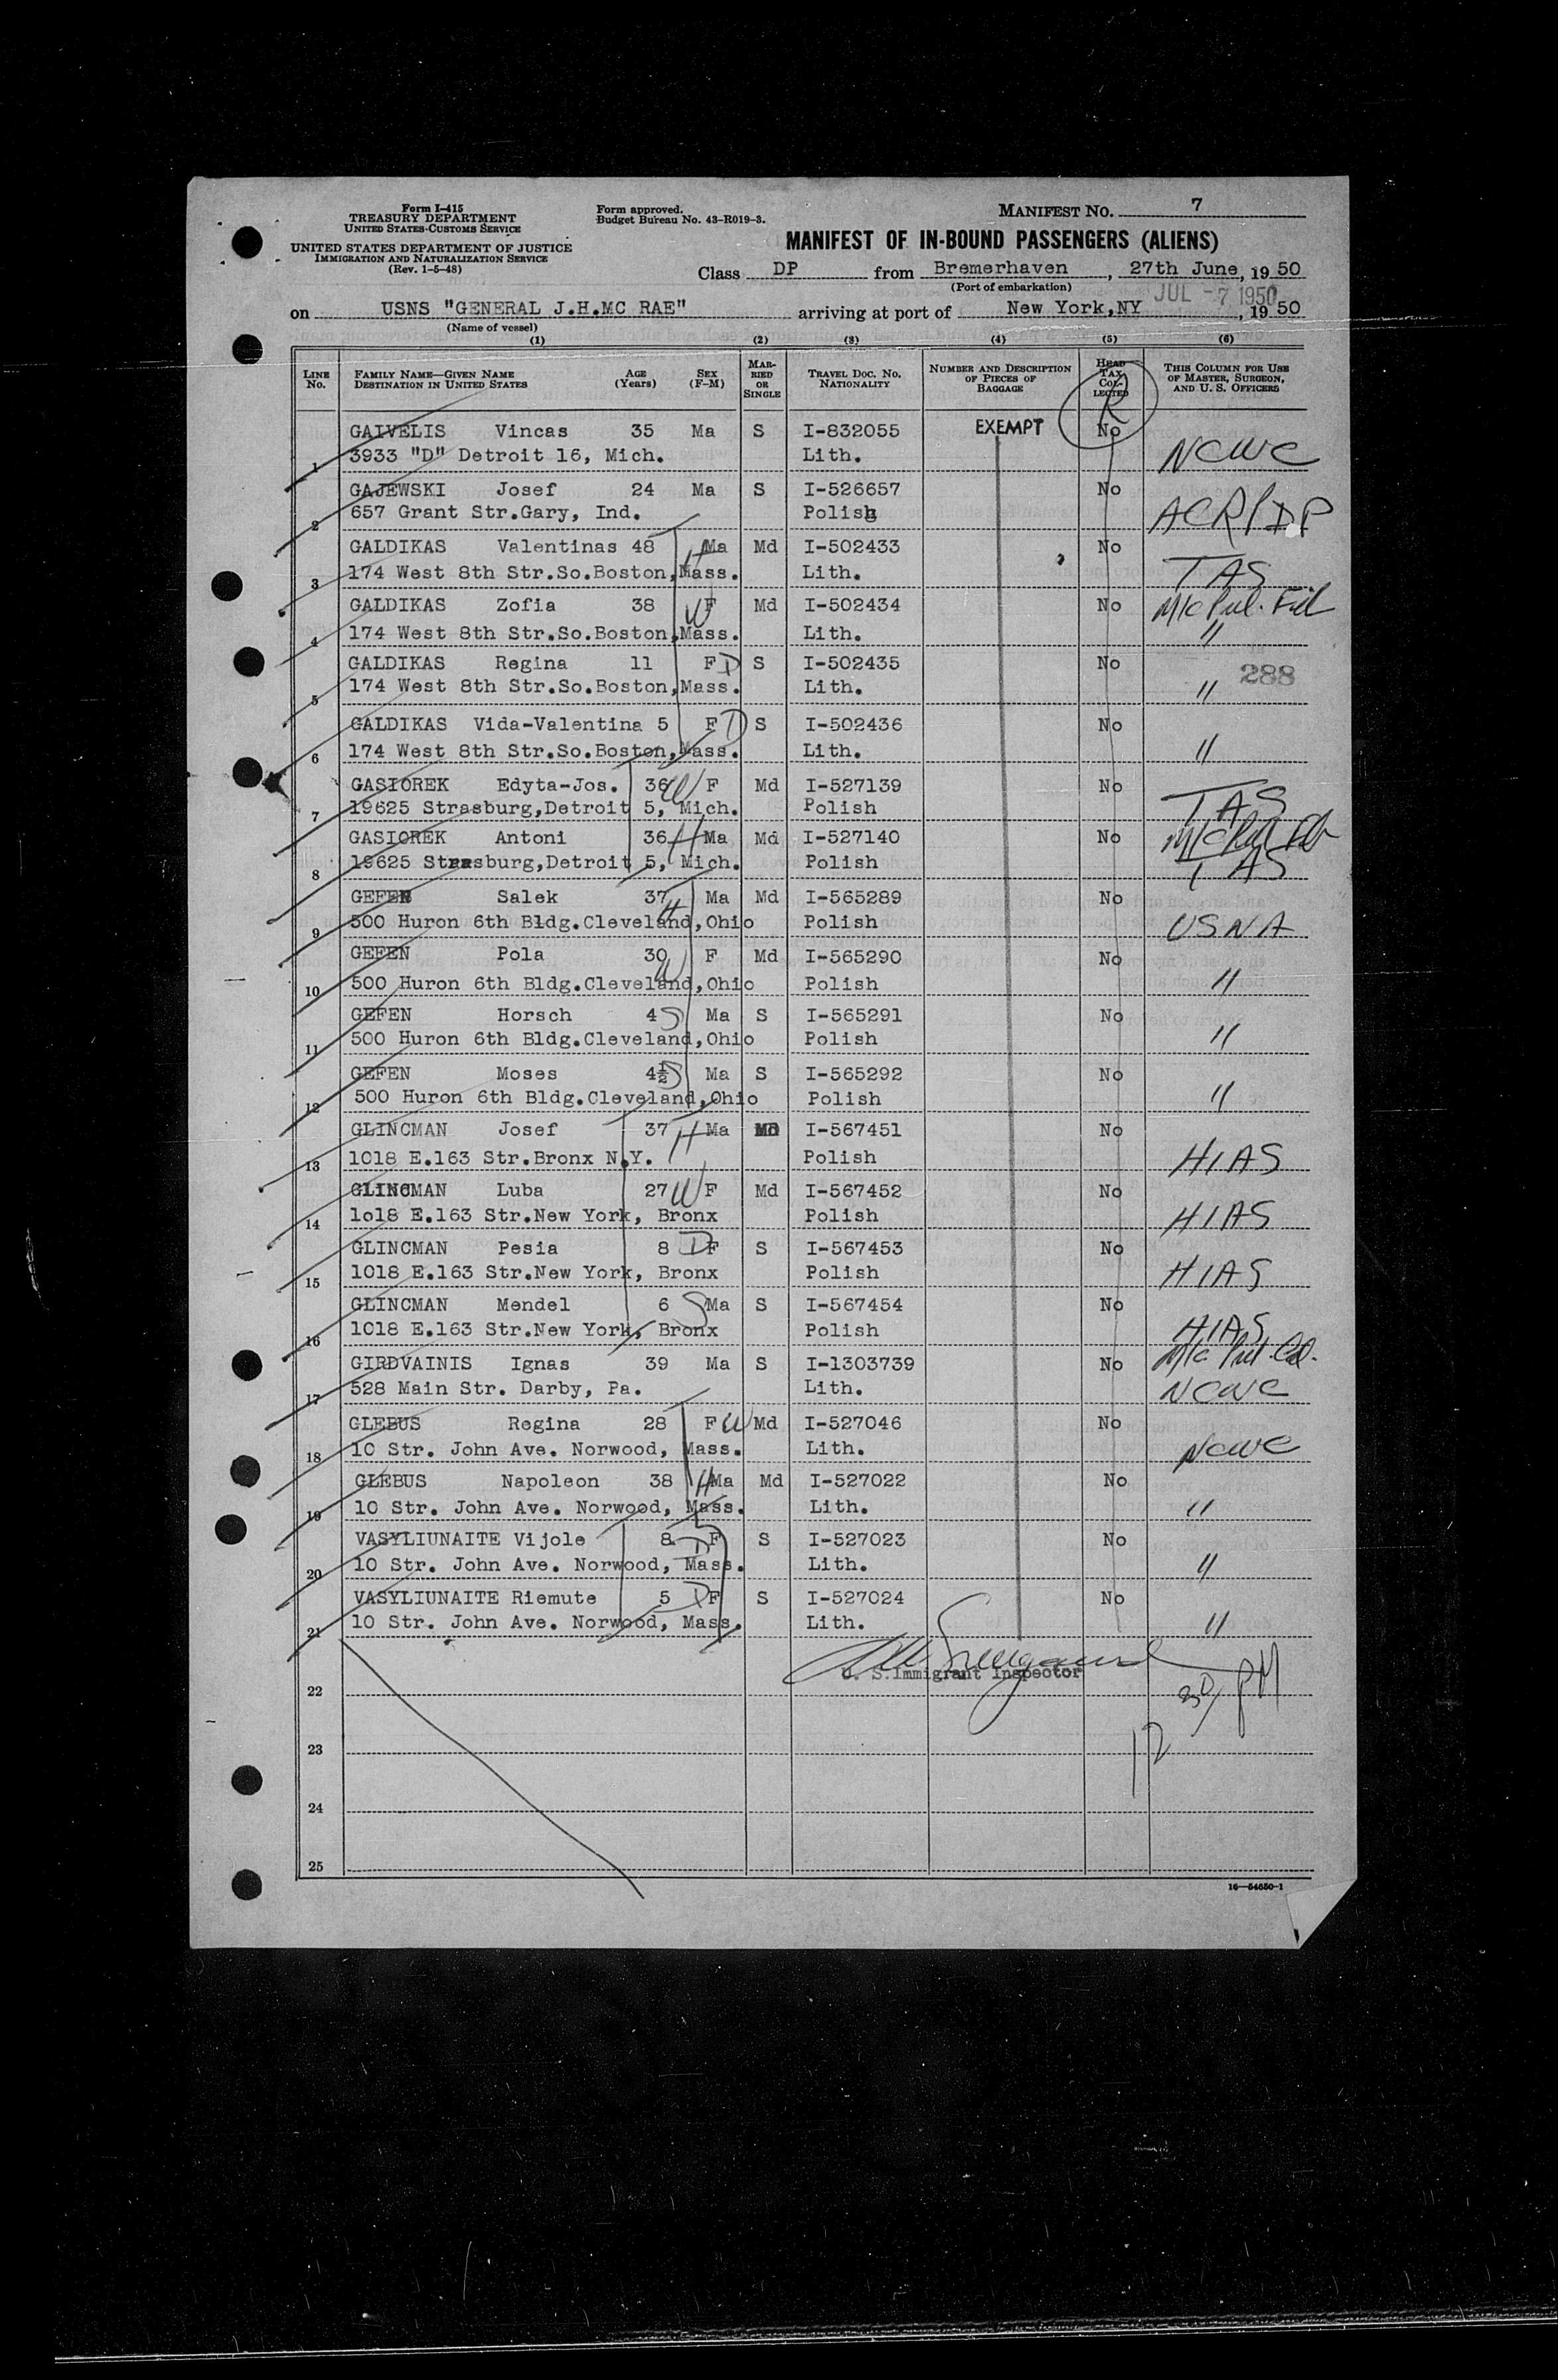 Form I-415
TREASURY DEPARTMENT
UNITED STATES CUSTOMS SERVICE
UNITED STATES DEPARTMENT OF JUSTICE
IMMIGRATION AND NATURALIZATION SERVICE
(Rev. 1-5-48)
Form approved.
Budget Bureau No. 43-R019-3.
MANIFEST NO. 7
MANIFEST OF IN-BOUND PASSENGERS (ALIENS)
Class DP from Bremerhaven, 27th June, 19 50
(Port of embarkation)
JUL -7 1950
on USNS "GENERAL J.H.MC RAE" arriving at port of New York,NY, 19 50
(Name of vessel)
(1) (2) (3) (4) (5) (6)
LINE NO. FAMILY NAME—GIVEN NAME DESTINATION IN UNITED STATES AGE (Years) SEX (F-M) MARRIED OR SINGLE TRAVEL DOC. NO. NATIONALITY NUMBER AND DESCRIPTION OF PIECES OF BAGGAGE HEAD TAX COLLECTED THIS COLUMN FOR USE OF MASTER, SURGEON, AND U. S. OFFICERS
R
GAIVELIS Vincas 35 Ma S I-832055 EXEMPT No
1 3933 "D" Detroit 16, Mich. Lith. NCWC
GAJEWSKI Josef 24 Ma S I-526657 No
2 657 Grant Str.Gary, Ind. Polish ACR/DP
GALDIKAS Valentinas 48 H Ma Md I-502433 No
3 174 West 8th Str.So.Boston,Mass. Lith. TAS
GALDIKAS Zofia 38 W F Md I-502434 No
4 174 West 8th Str.So.Boston,Mass. Lith. "
GALDIKAS Regina 11 F D S I-502435 No
288
5 174 West 8th Str.So.Boston,Mass. Lith. "
GALDIKAS Vida-Valentina 5 F D S I-502436 No
6 174 West 8th Str.So.Boston,Mass. Lith. "
GASIOREK Edyta-Jos. 36 W F Md I-527139 No
7 19625 Strasburg,Detroit 5, Mich. Polish TAS
GASIOREK Antoni 36 H Ma Md I-527140 No
8 19625 Strasburg,Detroit 5, Mich. Polish TAS
GEFEN Salek 37 H Ma Md I-565289 No
9 500 Huron 6th Bldg.Cleveland,Ohio Polish USNA
GEFEN Pola 30 W F Md I-565290 No
10 500 Huron 6th Bldg.Cleveland,Ohio Polish "
GEFEN Horsch 4 S Ma S I-565291 No
11 500 Huron 6th Bldg.Cleveland,Ohio Polish "
GEFEN Moses 4½ S Ma S I-565292 No
12 500 Huron 6th Bldg.Cleveland,Ohio Polish "
GLINCMAN Josef 37 H Ma Md I-567451 No
13 1018 E.163 Str.Bronx N.Y. Polish HIAS
GLINCMAN Luba 27 W F Md I-567452 No
14 1018 E.163 Str.New York, Bronx Polish HIAS
GLINCMAN Pesia 8 D F S I-567453 No
15 1018 E.163 Str.New York, Bronx Polish HIAS
GLINCMAN Mendel 6 S Ma S I-567454 No
16 1018 E.163 Str.New York, Bronx Polish HIAS
GIRDVAINIS Ignas 39 Ma S I-1303739 No
17 528 Main Str. Darby, Pa. Lith. NCWC
GLEBUS Regina 28 F W Md I-527046 No
18 10 Str. John Ave. Norwood, Mass. Lith. NCWC
GLEBUS Napoleon 38 H Ma Md I-527022 No
19 10 Str. John Ave. Norwood, Mass. Lith. "
VASYLIUNAITE Vijole 8 D F S I-527023 No
20 10 Str. John Ave. Norwood, Mass. Lith. "
VASYLIUNAITE Riemute 5 D F S I-527024 No
21 10 Str. John Ave. Norwood, Mass. Lith. "
U. S.Immigrant Inspector
22
12 30/ PM
23
24
25
16—54650-1